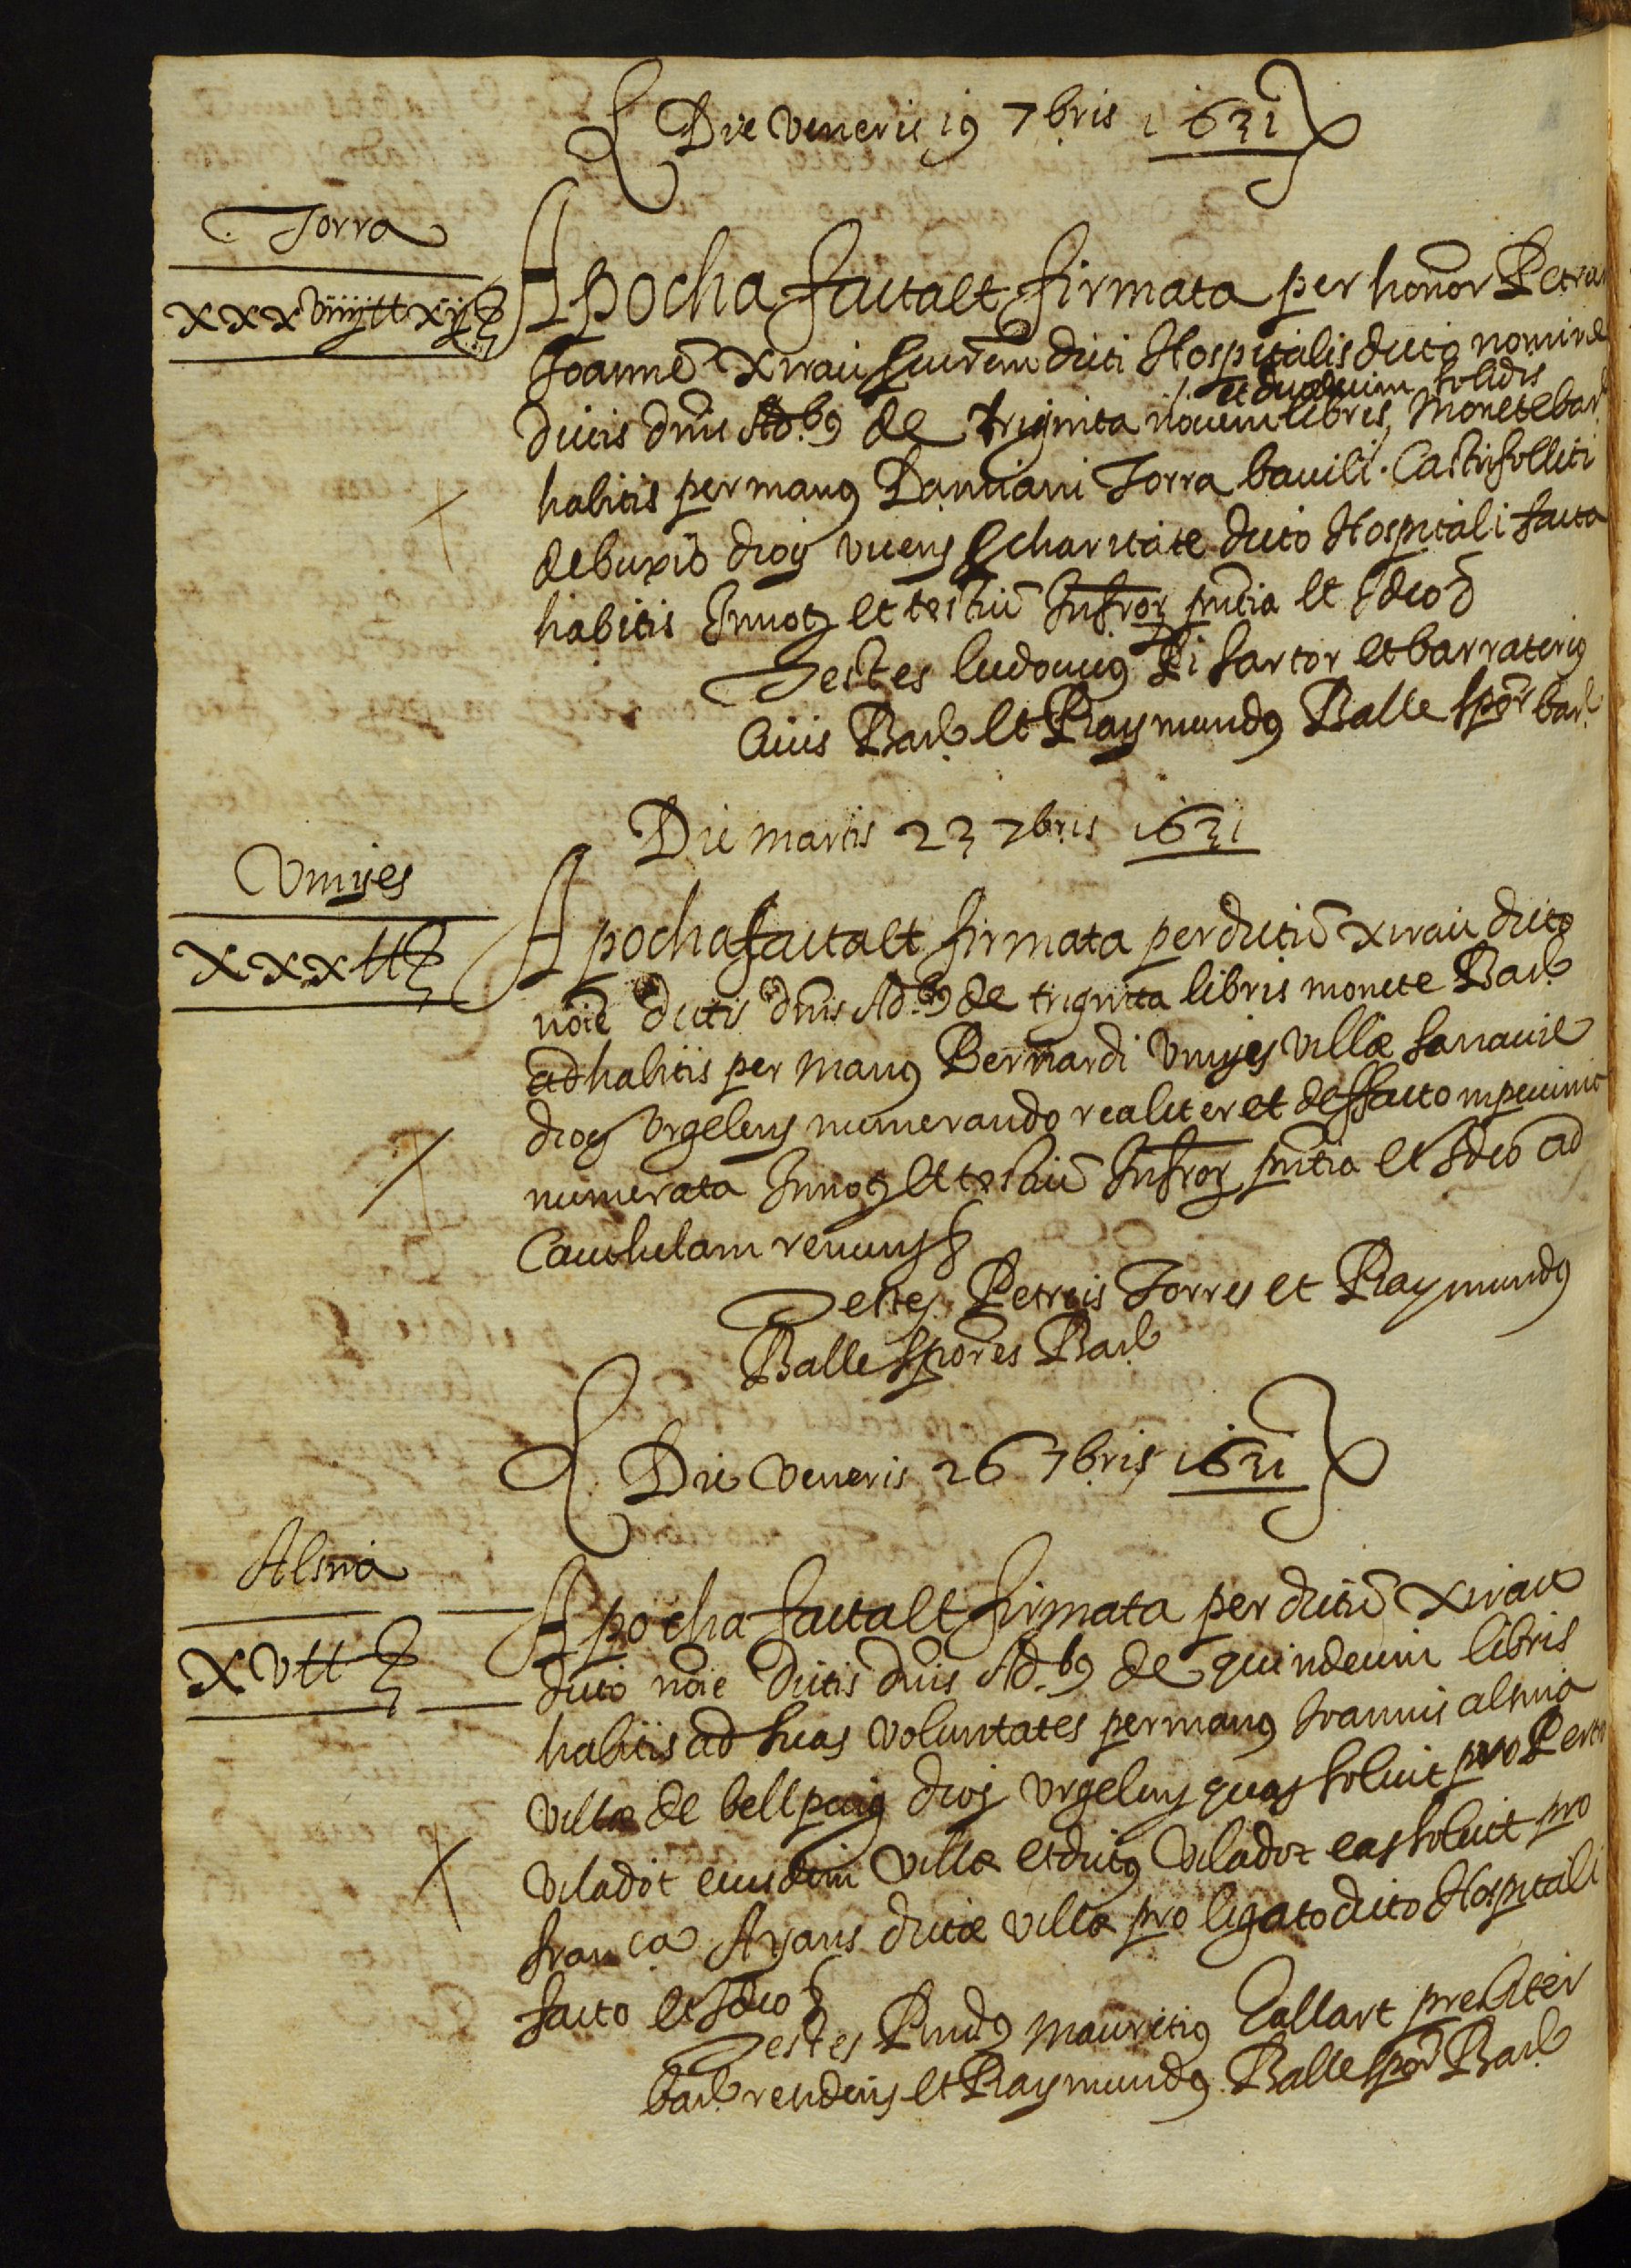 Die Veneris 19 7bris 1631
Torra
xxxviiijtt xijs
Apocha facta et firmata per honor Petrum
Joannē Xirau dicti Hospitalis dicto nomine
et duodecim solidis
dictis dnis Adbus de triginta novem libris, monete bar
habitis per manus Damiani Torra baiuli Castrifolliti
debuxio diocs vicens charitate dicto Hospitali facta
habitis In not et testiū Infror pntia et Ideo
Testes Ludovicus Pi sartor et barraterius
Civis Barc et Raymundus Balle spōr bar
Die martis 23 7bris 1631
Vinyes
xxxtt
Apocha facta et firmata per dictū Xirau dicto
noie dictis dnis Adbus de triginta libris monete Barc
ad habitis per manus Bernardi Vinyes villæ
diocs Urgellens numerando realiter et de ffacto in pecunia
numerata In not et testiū Infror pntia et Ideo ad
Cauthelam renuns
Testes Petrus Torres et Raymundus
Balle spōres Barc
Die Veneris 26 7bris 1631
Alsina
xvtt
Apocha facta et firmata per dictū Xirau
dicto noie dictis dnis Adbus de quindecim libris
habitis ad suas voluntates per manus Joannis alsina
villæ de bellpuig diocs Urgellens quas solvit pro
Viladot eiusdem villæ et dictus Viladot eas solvit pro
franca Ayans dictæ villæ pro ligato dicto Hospitali
facto et Ideo
Testes Rndus Mauritius Gallart presbiter
barc residens et Raymundus Balle spōr Barc